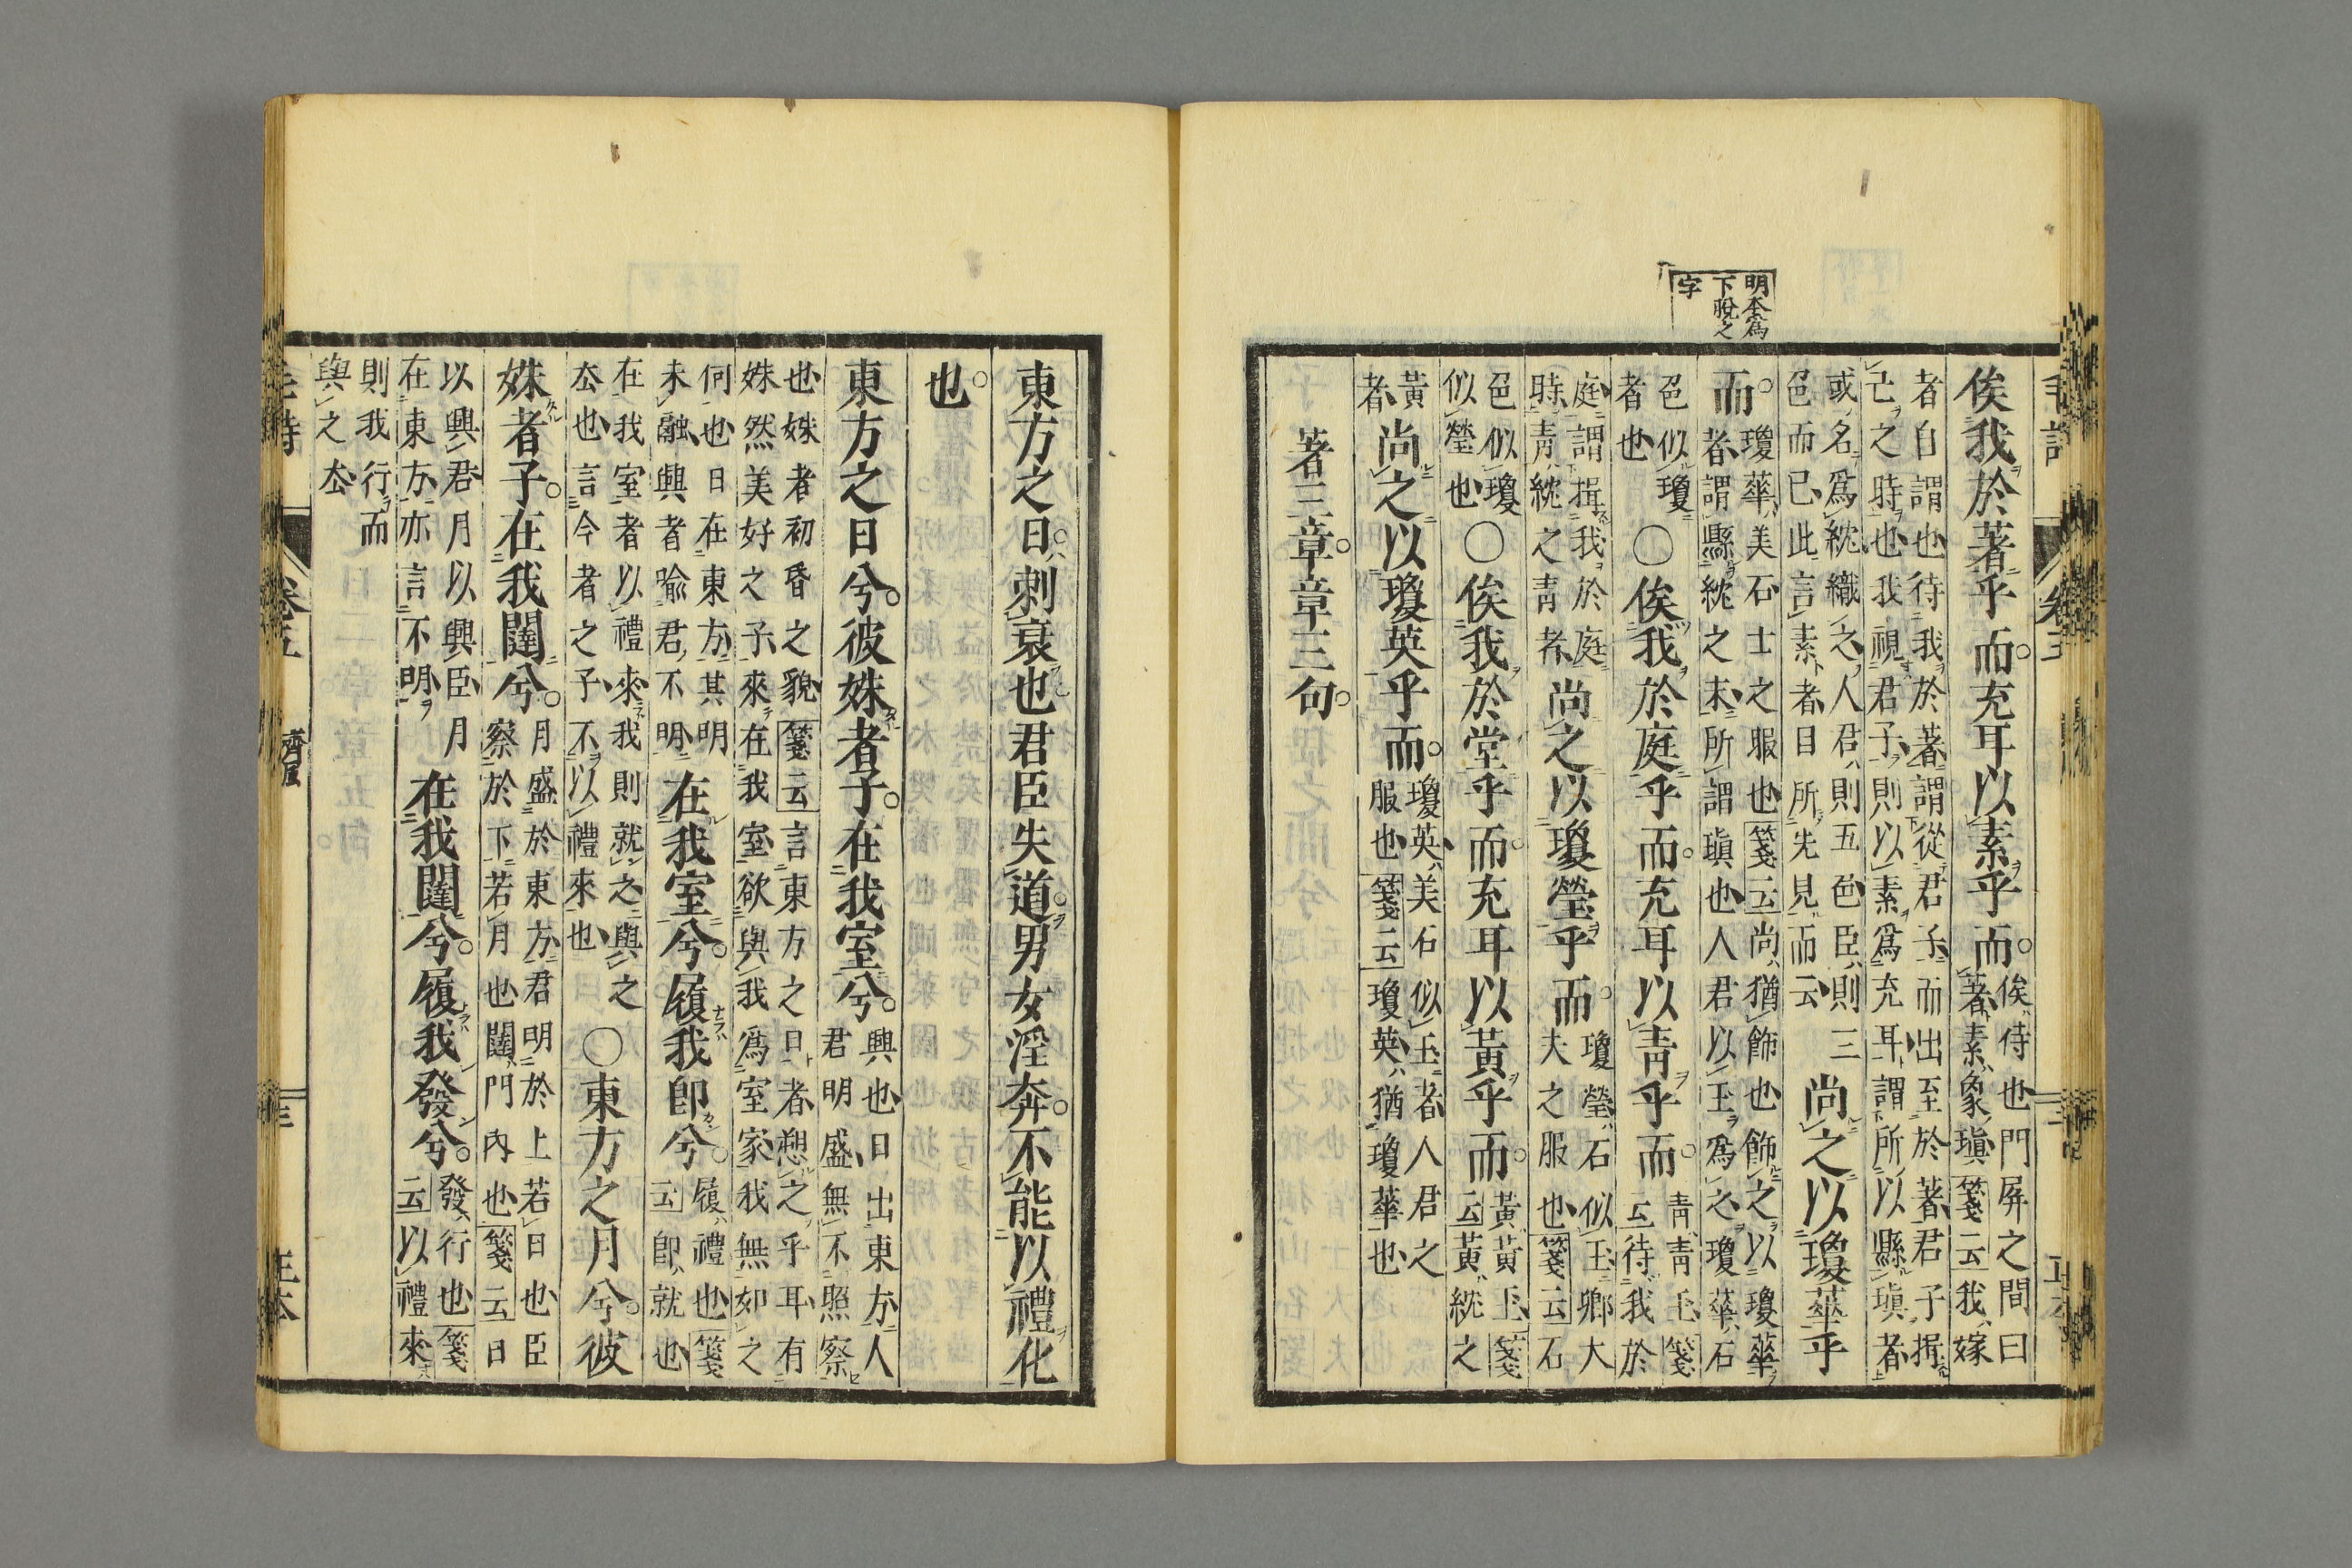 毛詩
明夲爲
下脫之
字
俟我於著乎而充耳以素乎而
俟待也門屏之間曰
著素象瑱箋云我嫁
者自謂也待我於著謂從君子而出至於著君子揖
己之時也我視君子則以素爲充耳謂所以縣瑱者
或名爲紞織之人君則五色臣則三
色而已此言素者目所先見而云
尚之以瓊華乎
而
瓊華美石士之服也箋云尚猶飾也飾之以瓊華
者謂縣紞之末所謂瑱也人君以玉爲之瓊華石
色似瓊
者也
○俟我於庭乎而充耳以青乎而
青青玉箋
云待我於
庭謂揖我於庭
時青紞之青者
尚之以瓊瑩乎而
瓊瑩石似玉卿大
夫之服也箋云石
色似瓊
似瑩也
○俟我於堂乎而充耳以黃乎而
黃黃玉箋
云黃紞之
黃
者
尚之以瓊英乎而
瓊英美石似玉者人君之
服也箋云瓊英猶瓊華也
著三章章三句
東方之日刺衰也君臣失道男女淫奔不能以禮化
也
東方之日兮彼姝者子在我室兮
興也日出東方人
君明盛無不照察
也姝者初昏之貌箋云言東方之日者愬之乎耳有
姝然美好之子來在我室欲與我爲室家我無如之
何也日在東方其明
未融興者喩君不明
在我室兮履我卽兮
履禮也箋
云卽就也
在我室者以禮來我則就之與之
厺也言今者之子不以禮來也
○東方之月兮彼
姝者子在我闥兮
月盛於東方君明於上若日也臣
察於下若月也闥門內也箋云日
以興君月以興臣月
在東方亦言不明
在我闥兮履我發兮
發行也箋
云以禮來
則我行而
與之厺
齊風